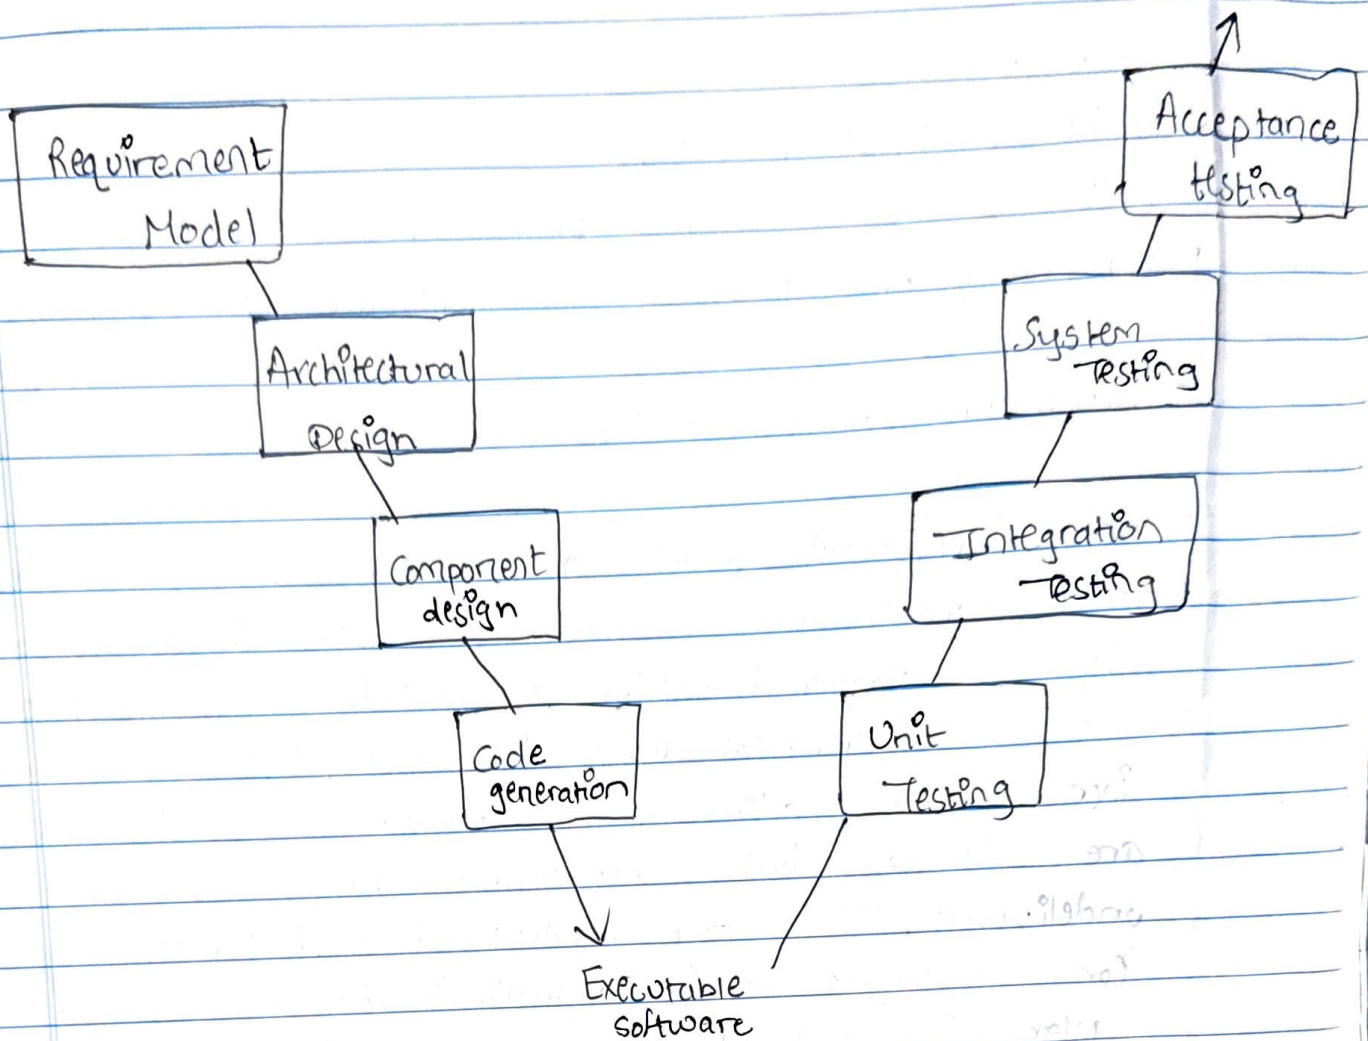 Requirement
Model
Architectural
Design
Component
design
Code
generation
Executable
software
Unit
Testing
Integration
Testing
System
Testing
Acceptance
testing